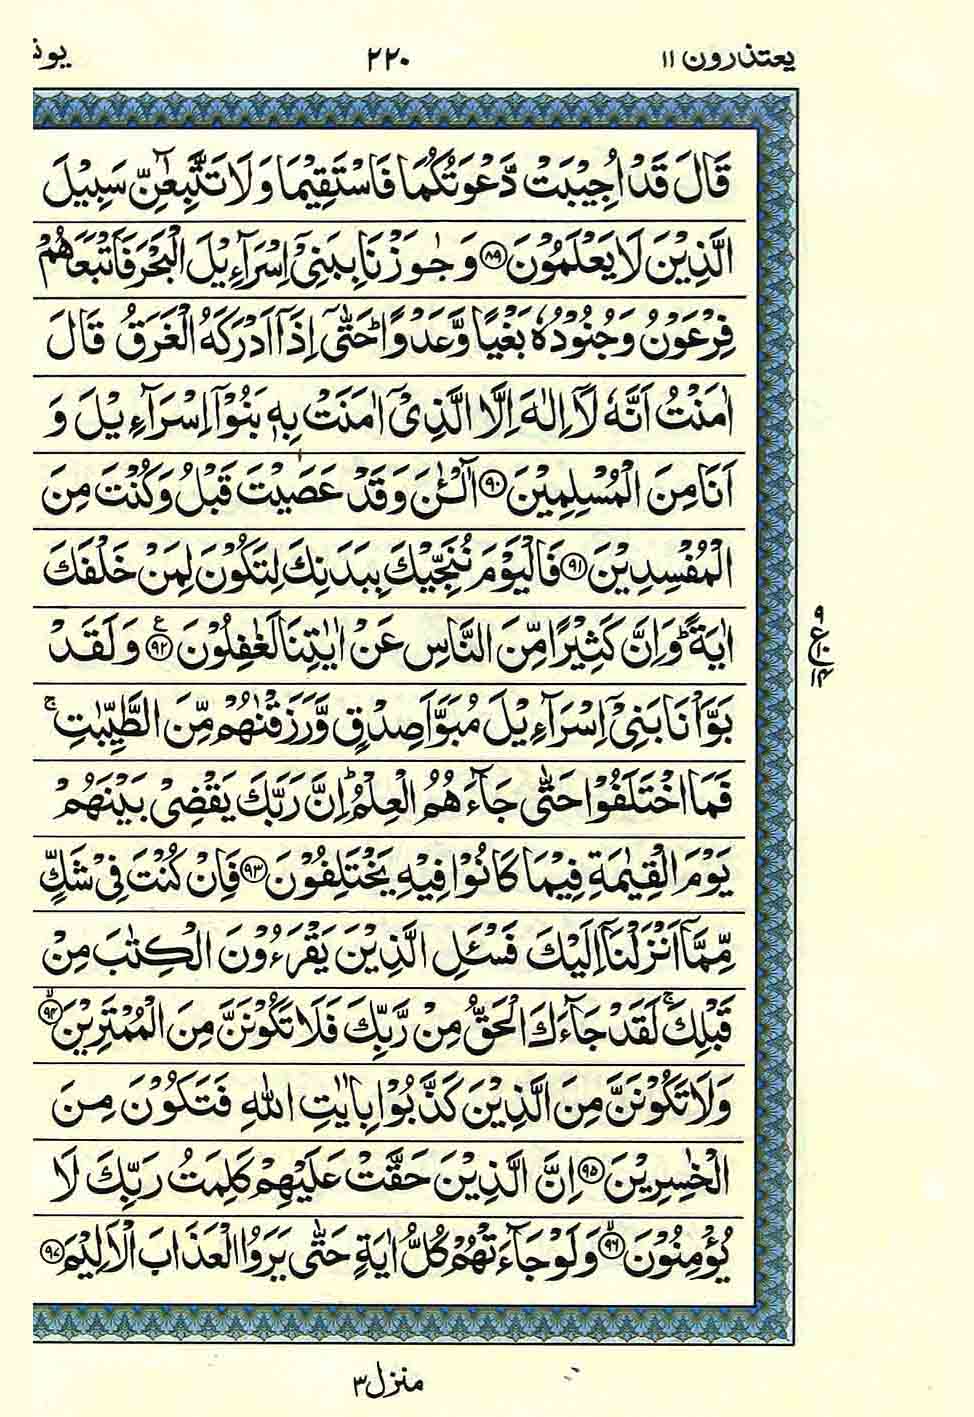 یعتذرون ۱۱
۲۲۰
یون
قَالَ قَدْ اُجِیْبَتْ دَّعْوَتُكُمَا فَاسْتَقِیْمَا وَ لَا تَتَّبِعٰٓنِّ سَبِیْلَ
الَّذِیْنَ لَا یَعْلَمُوْنَ ﴿۸۹﴾ وَ جٰوَزْنَا بِبَنِیْۤ اِسْرَآءِیْلَ الْبَحْرَ فَاَتْبَعَهُمْ
فِرْعَوْنُ وَ جُنُوْدُهٗ بَغْیًا وَّ عَدْوًا ؕ حَتّٰۤی اِذَاۤ اَدْرَكَهُ الْغَرَقُ قَالَ
اٰمَنْتُ اَنَّهٗ لَاۤ اِلٰهَ اِلَّا الَّذِیْۤ اٰمَنَتْ بِهٖ بَنُوْۤا اِسْرَآءِیْلَ وَ
اَنَا مِنَ الْمُسْلِمِیْنَ ﴿۹۰﴾ آٰلْـٰٔنَ وَ قَدْ عَصَیْتَ قَبْلُ وَ كُنْتَ مِنَ
الْمُفْسِدِیْنَ ﴿۹۱﴾ فَالْیَوْمَ نُنَجِّیْكَ بِبَدَنِكَ لِتَكُوْنَ لِمَنْ خَلْفَكَ
اٰیَةً ؕ وَ اِنَّ كَثِیْرًا مِّنَ النَّاسِ عَنْ اٰیٰتِنَا لَغٰفِلُوْنَ ﴿۹۲﴾ ع وَ لَقَدْ
۹
ع ۱۰
۱۴
بَوَّاْنَا بَنِیْۤ اِسْرَآءِیْلَ مُبَوَّاَ صِدْقٍ وَّ رَزَقْنٰهُمْ مِّنَ الطَّیِّبٰتِ ۚ
فَمَا اخْتَلَفُوْا حَتّٰی جَآءَهُمُ الْعِلْمُ ؕ اِنَّ رَبَّكَ یَقْضِیْ بَیْنَهُمْ
یَوْمَ الْقِیٰمَةِ فِیْمَا كَانُوْا فِیْهِ یَخْتَلِفُوْنَ ﴿۹۳﴾ فَاِنْ كُنْتَ فِیْ شَكٍّ
مِّمَّاۤ اَنْزَلْنَاۤ اِلَیْكَ فَسْـَٔلِ الَّذِیْنَ یَقْرَءُوْنَ الْكِتٰبَ مِنْ
قَبْلِكَ ۚ لَقَدْ جَآءَكَ الْحَقُّ مِنْ رَّبِّكَ فَلَا تَكُوْنَنَّ مِنَ الْمُمْتَرِیْنَ ۙ﴿۹۴﴾
وَ لَا تَكُوْنَنَّ مِنَ الَّذِیْنَ كَذَّبُوْا بِاٰیٰتِ اللّٰهِ فَتَكُوْنَ مِنَ
الْخٰسِرِیْنَ ﴿۹۵﴾ اِنَّ الَّذِیْنَ حَقَّتْ عَلَیْهِمْ كَلِمَتُ رَبِّكَ لَا
یُؤْمِنُوْنَ ۙ﴿۹۶﴾ وَ لَوْ جَآءَتْهُمْ كُلُّ اٰیَةٍ حَتّٰی یَرَوُا الْعَذَابَ الْاَلِیْمَ ﴿۹۷﴾
منزل ۳